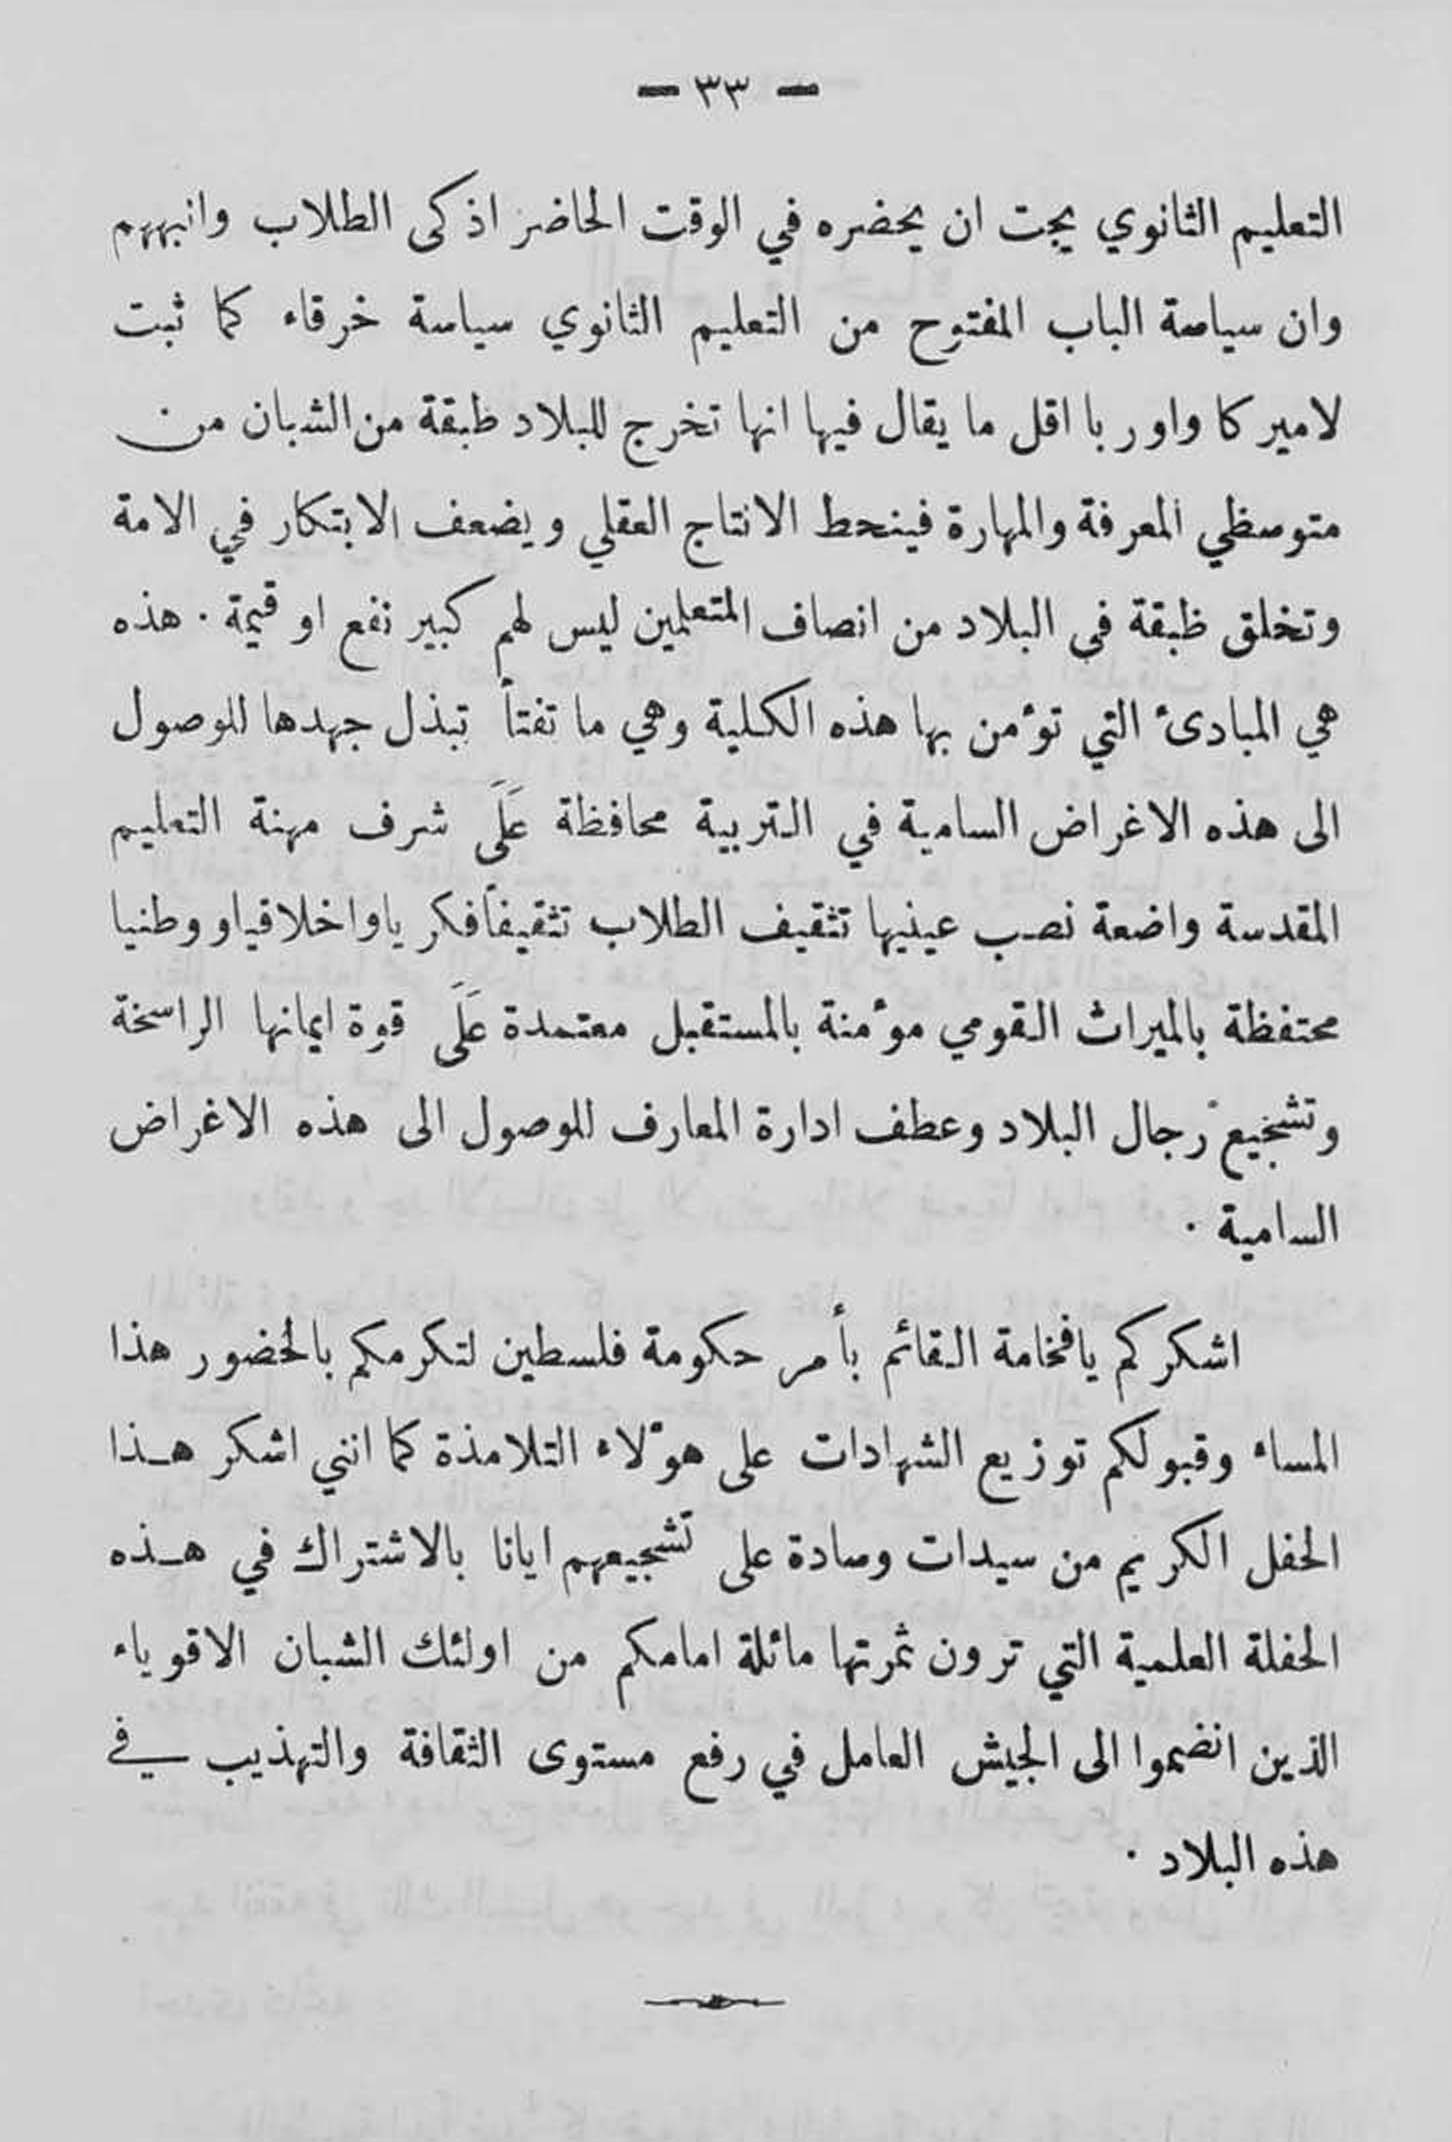 — ٣٣ —
التعليم الثانوي يجت ان يحضره في الوقت الحاضر اذكى الطلاب وانبههم
وان سياسة الباب المفتوح من التعليم الثانوي سياسة خرقاء كما ثبت
لاميركا واوربا اقل ما يقال فيها انها تخرج للبلاد طبقة من الشبان من
متوسطي المعرفة والمهارة فينحط الانتاج العقلي ويضعف الابتكار في الامة
وتخلق طبقة في البلاد من انصاف المتعلمين ليس لهم كبير نفع او قيمة . هذه
هي المبادئ التي تؤمن بها هذه الكلية وهي ما تفتأ تبذل جهدها للوصول
الى هذه الاغراض السامية في التربية محافظة عَلَى شرف مهنة التعليم
المقدسة واضعة نصب عينيها تثقيف الطلاب تثقيفاً فكريا واخلاقيا ووطنيا
محتفظة بالميراث القومي مؤمنة بالمستقبل معتمدة عَلَى قوة ايمانها الراسخة
وتشجيع رجال البلاد وعطف ادارة المعارف للوصول الى هذه الاغراض
السامية .
اشكركم يا فخامة القائم بأمر حكومة فلسطين لتكرمكم بالحضور هذا
المساء وقبولكم توزيع الشهادات على هؤلاء التلامذة كما انني اشكر هـذا
الحفل الكريم من سيدات وسادة على تشجيعهم ايانا بالاشتراك في هـذه
الحفلة العلمية التي ترون ثمرتها ماثلة امامكم من اولئك الشبان الاقوياء
الذين انضموا الى الجيش العامل في رفع مستوى الثقافة والتهذيب في
هذه البلاد .